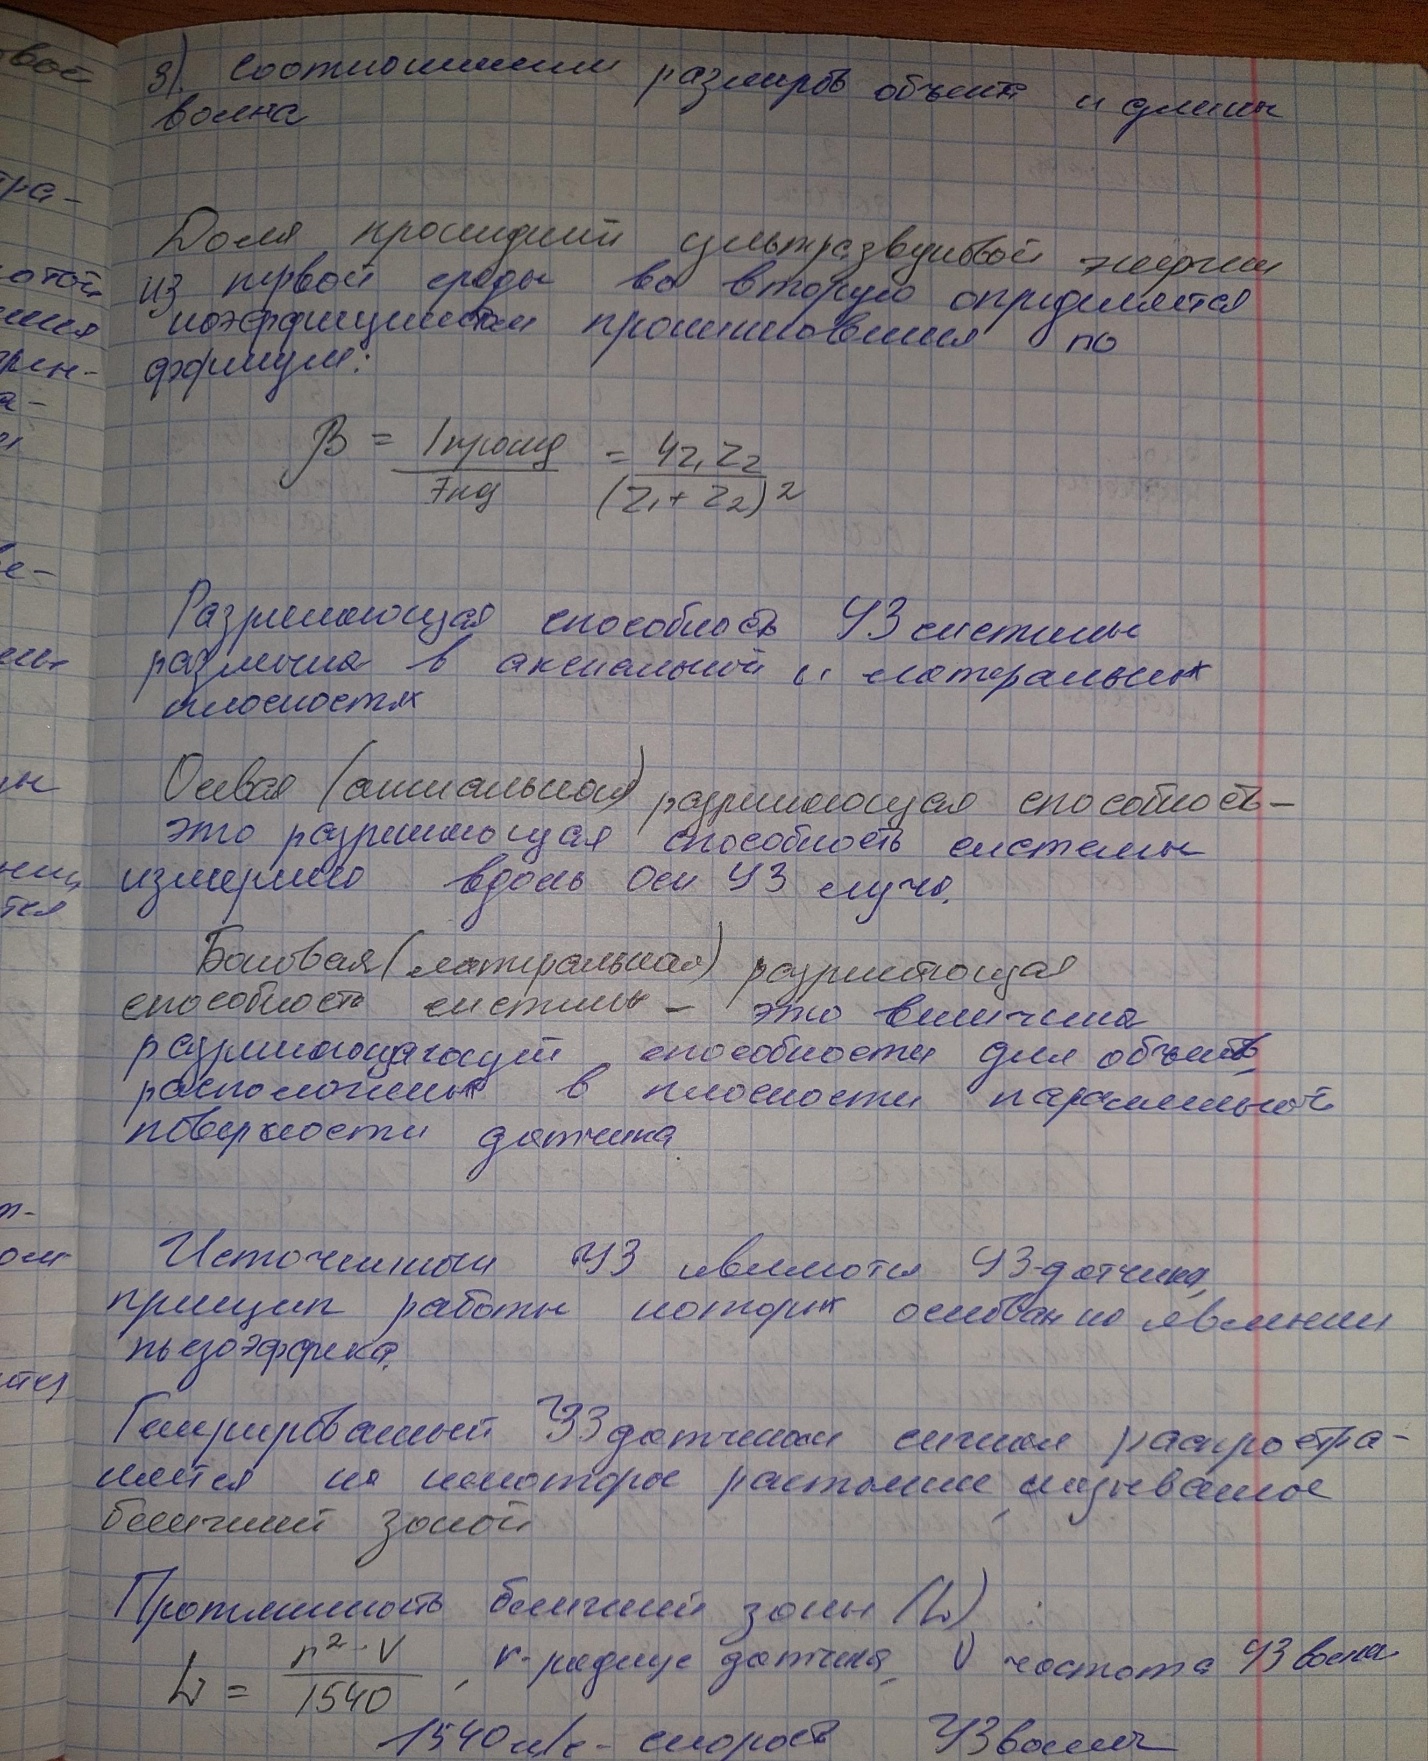 з). соотношением размеров объекта и длины
волна
Доля прошедшей ультразвуковой энергии
из первой среды во вторую определяется
коэффициентом проникновения по
формуле:
β = Iпрошд / Iпд = 4z₁z₂ / (z₁+z₂)²
Разрешающая способность УЗ системы
различна в аксиальной и латеральных
плоскостях
Осевая (аксиальная) разрешающая способность –
это разрешающая способность системы
измерено вдоль оси УЗ луча.
Боковая (латеральная) разрешающая
способность системы – это величина
разрешающей способности для объектов,
расположеных в плоскости параллельной
поверхности датчика
Источником УЗ являются УЗ-датчики,
принцип работы которых основан на явлении
пьезоэффекта.
Генерированный УЗ датчиком сигнал распростра-
няется на некоторое растояние, называемое
ближний зоной
Протяженность ближней зоны (L) :
L = r²·ν / 1540 , r-радиус датчика, ν частота УЗ волн
1540 м/с - скорость УЗ волны
вой
тра-
отой
ния
а-
ве-
ны
тся
ом